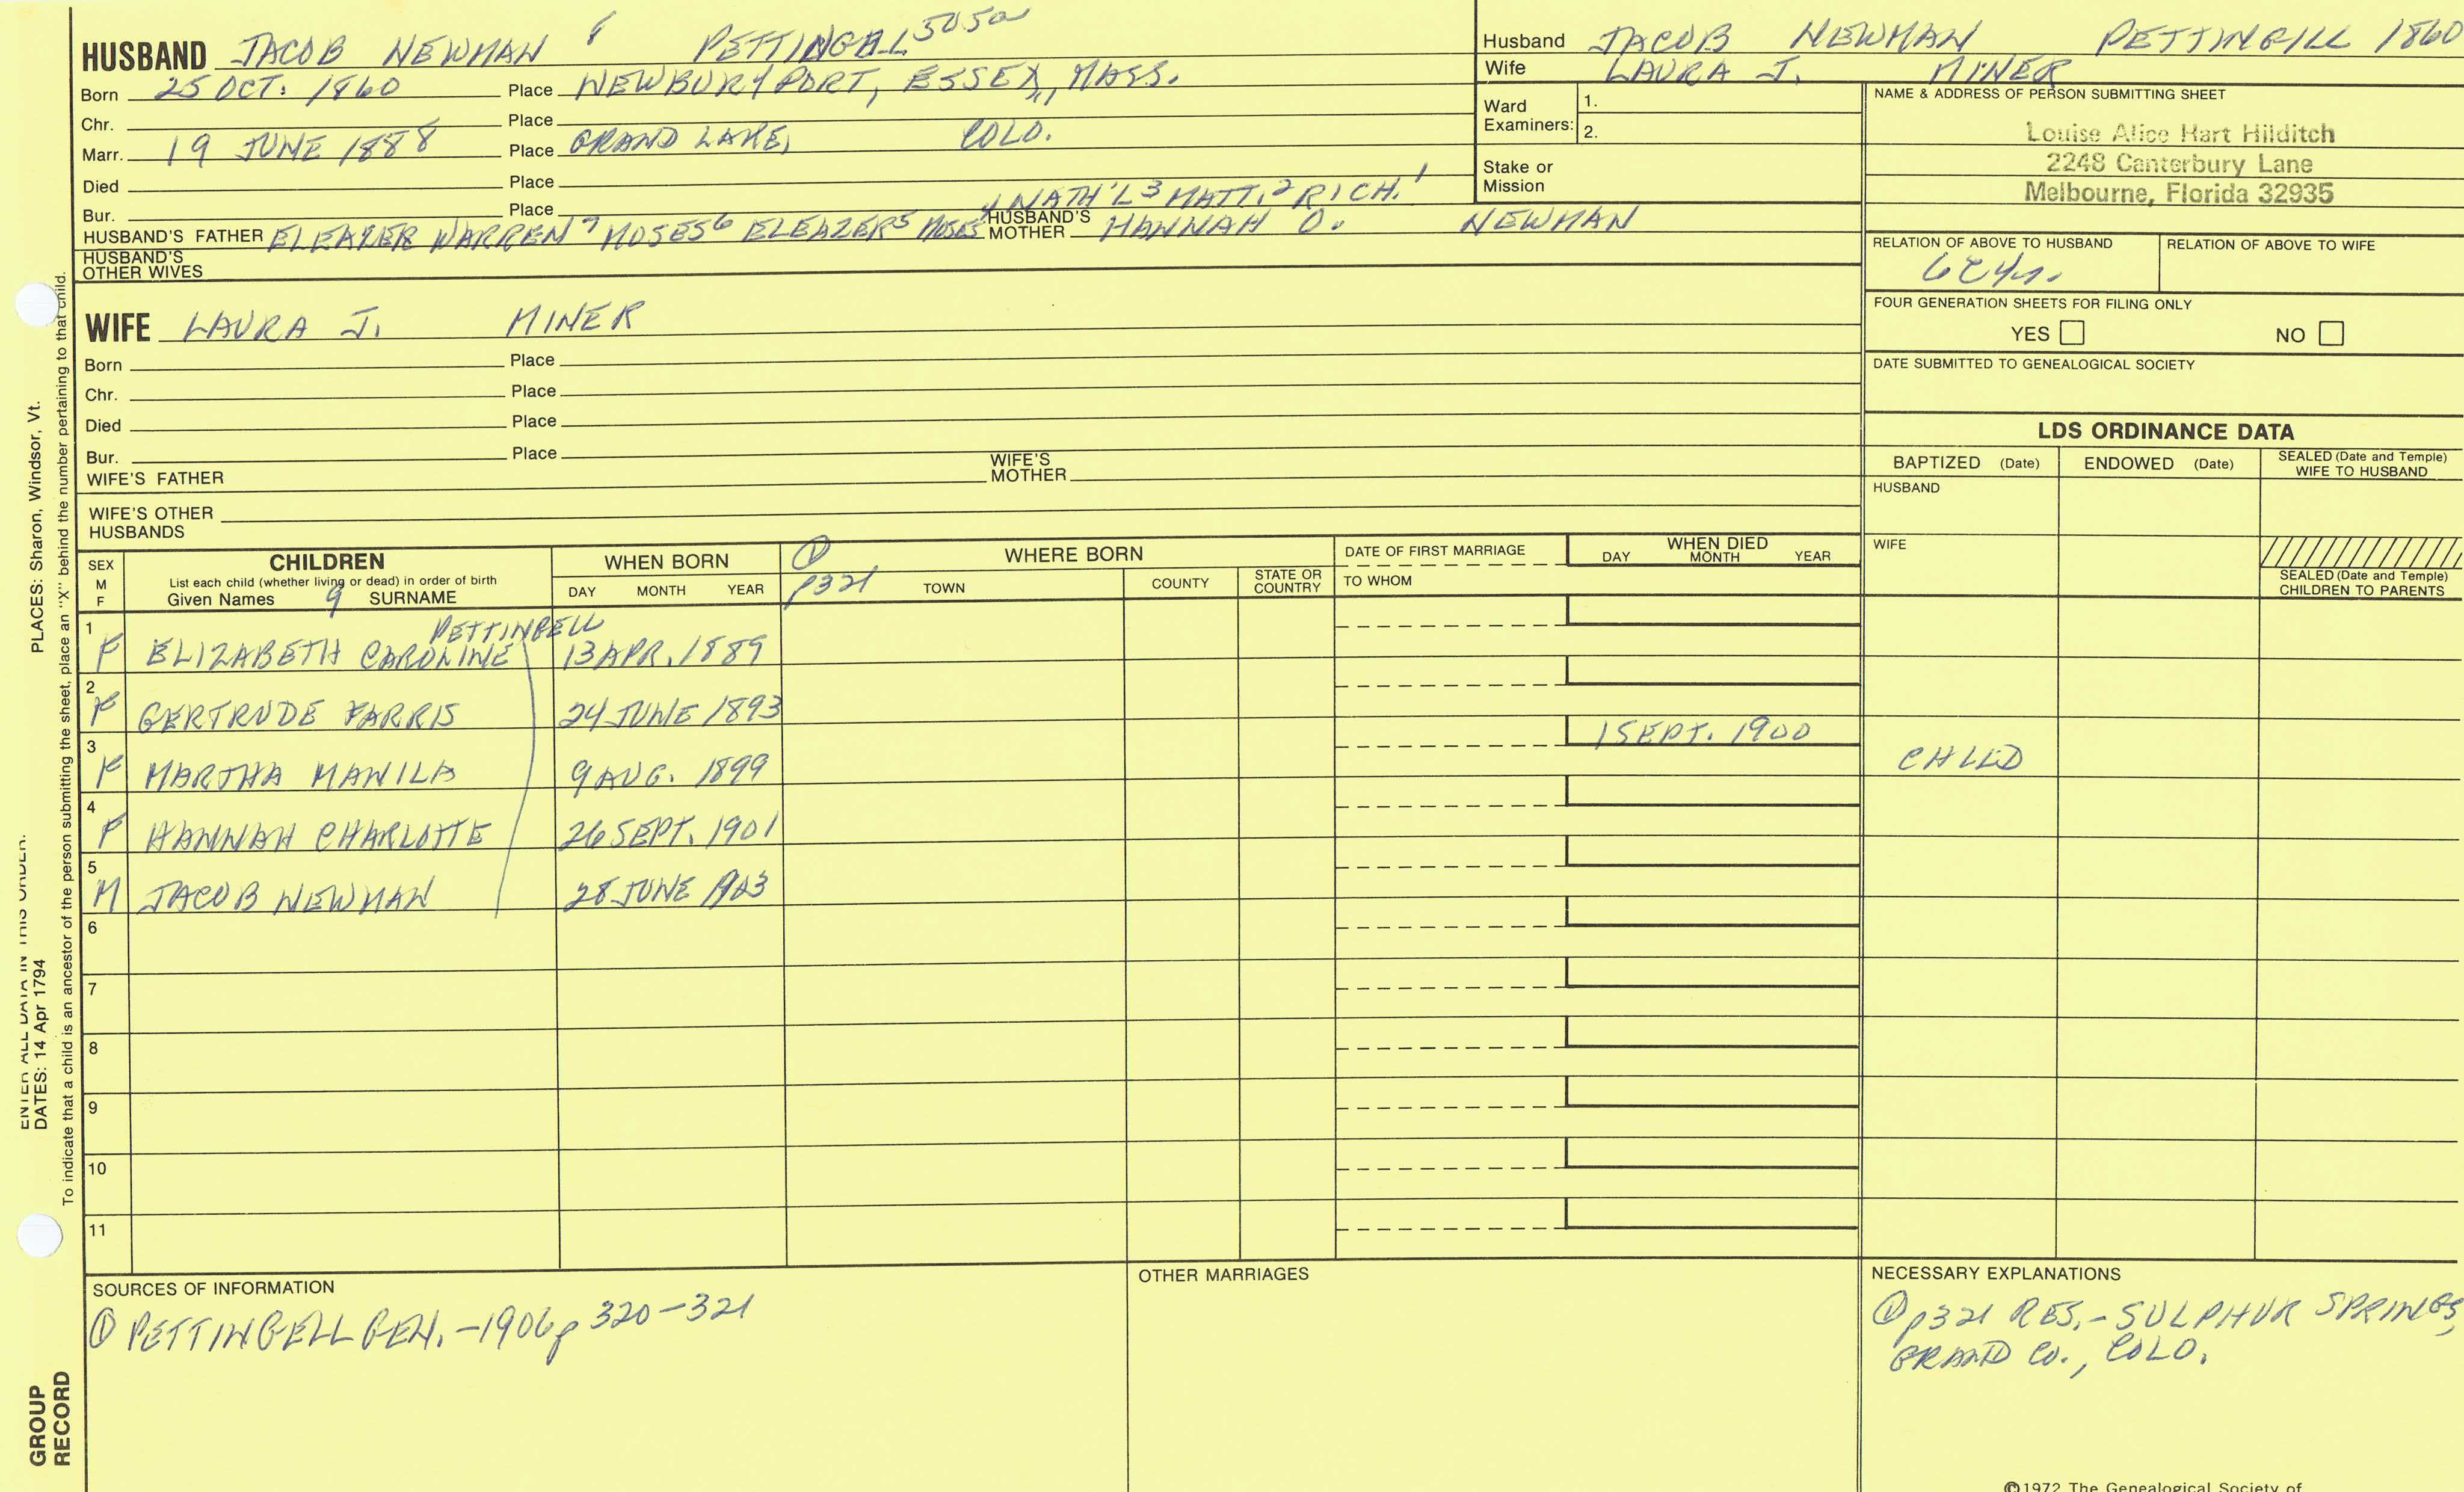 HUSBAND JACOB NEWMAN 8 PETTINGELL 5050
Born 25 OCT. 1860 Place NEWBURYPORT, ESSEX, MASS.
Chr. Place
Marr. 19 JUNE 1888 Place GRAND LAKE, COLO.
Died Place
Bur. Place
4 NATH'L 3 MATT. 2 RICH. 1
HUSBAND'S FATHER ELEAZER WARREN 7 MOSES 6 ELEAZER 5 MOSES HUSBAND'S MOTHER HANNAH O. NEWMAN
HUSBAND'S OTHER WIVES
Husband JACOB NEWMAN PETTINGILL 1860
Wife LAURA J. MINER
Ward Examiners: 1.
2.
Stake or Mission
NAME & ADDRESS OF PERSON SUBMITTING SHEET
Louise Alice Hart Hilditch
2248 Canterbury Lane
Melbourne, Florida 32935
RELATION OF ABOVE TO HUSBAND RELATION OF ABOVE TO WIFE
FOUR GENERATION SHEETS FOR FILING ONLY
YES NO
DATE SUBMITTED TO GENEALOGICAL SOCIETY
WIFE LAURA J. MINER
Born Place
Chr. Place
Died Place
Bur. Place
WIFE'S FATHER WIFE'S MOTHER
WIFE'S OTHER HUSBANDS
LDS ORDINANCE DATA
BAPTIZED (Date) ENDOWED (Date) SEALED (Date and Temple) WIFE TO HUSBAND
HUSBAND
WIFE
SEALED (Date and Temple) CHILDREN TO PARENTS
SEX M F
CHILDREN
List each child (whether living or dead) in order of birth
Given Names 9 SURNAME
WHEN BORN
DAY MONTH YEAR
① p321
WHERE BORN
TOWN COUNTY STATE OR COUNTRY
DATE OF FIRST MARRIAGE
TO WHOM
WHEN DIED
DAY MONTH YEAR
PETTINGELL
1 F ELIZABETH CAROLINE 13 APR. 1889
2 F GERTRUDE FARRIS 24 JUNE 1893
3 F MARTHA MANILA 9 AUG. 1899 1 SEPT. 1900 CHILD
4 F HANNAH CHARLOTTE 26 SEPT. 1901
5 M JACOB NEWMAN 28 JUNE 1903
6
7
8
9
10
11
SOURCES OF INFORMATION
① PETTINGELL GEN. -1906 p 320-321
OTHER MARRIAGES
NECESSARY EXPLANATIONS
① p321 RES. - SULPHUR SPRINGS,
GRAND CO., COLO.
©1972 The Genealogical Society of
PLACES: Sharon, Windsor, Vt.
ENTER ALL DATA IN THIS ORDER:
DATES: 14 Apr 1794
To indicate that a child is an ancestor of the person submitting the sheet, place an "X" behind the number pertaining to that child.
GROUP
RECORD